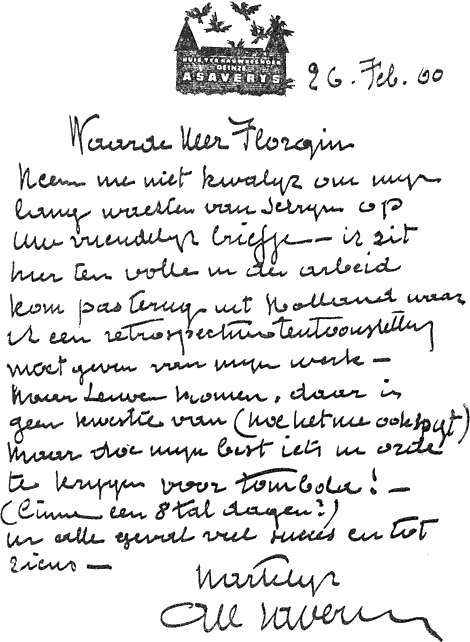 HUIS TER KAUWHEERDEN
DEINZE
A SAVERYS
26. Feb. 00
Waarde Heer Florquin
Neem me niet kwalijk om mijn
lang wachten van schrijven op
Uw vriendelijk briefje — ik zit
hier ten volle in den arbeid
kom pas terug uit Holland waar
ik een retrospectieve tentoonstelling
moet geven van mijn werk —
Naar Leuven komen, daar is
geen kwestie van (hoe het me ook spijt)
Maar doe mijn best iets in orde
te krijgen voor tombola! —
(binnen een 8 tal dagen?)
in alle geval veel succes en tot
ziens —
Hartelijk
Alb Saverys